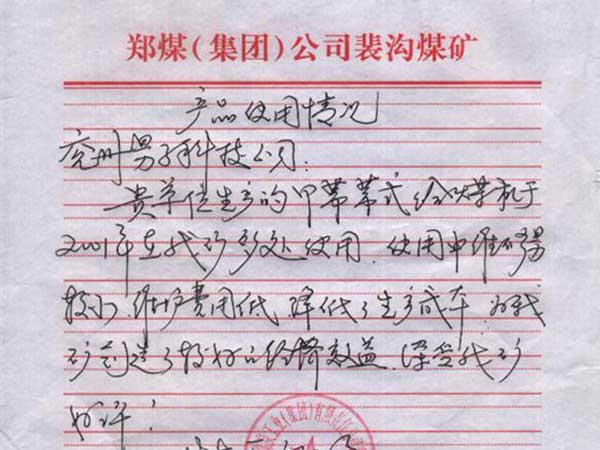 郑煤（集团）公司裴沟煤矿
产品使用情况
兖州 科技公司：
贵单位生产的甲带式给煤机于
2001年在我矿多处使用，使用中维
较小，维护费用低，降低了生产成本，为我
矿创造了较好的经济效益，深受我矿
好评！